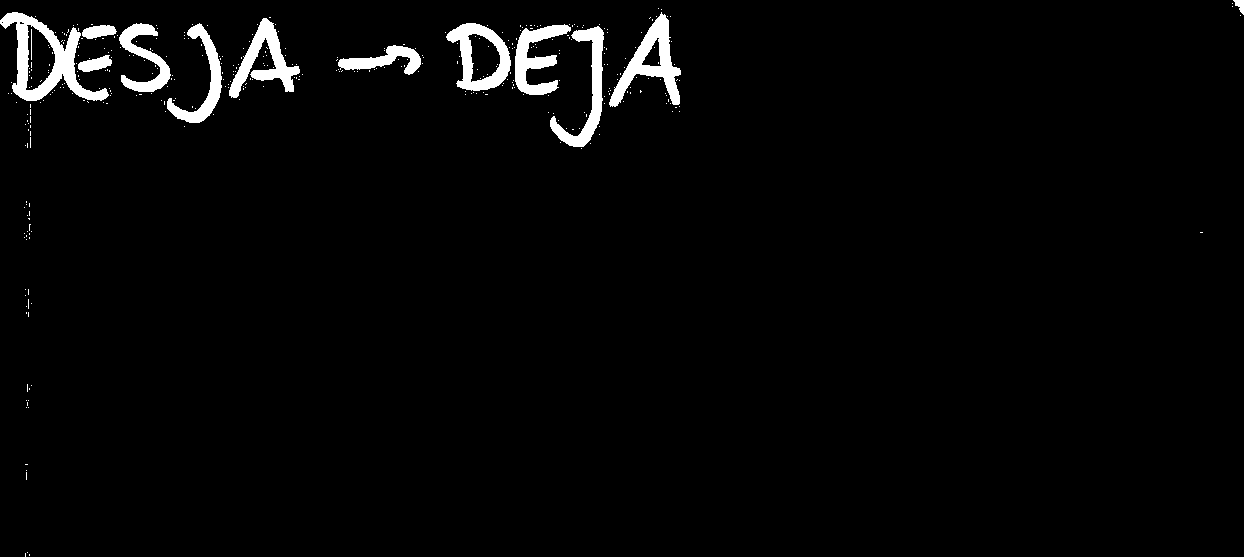 DESJA → DEJA